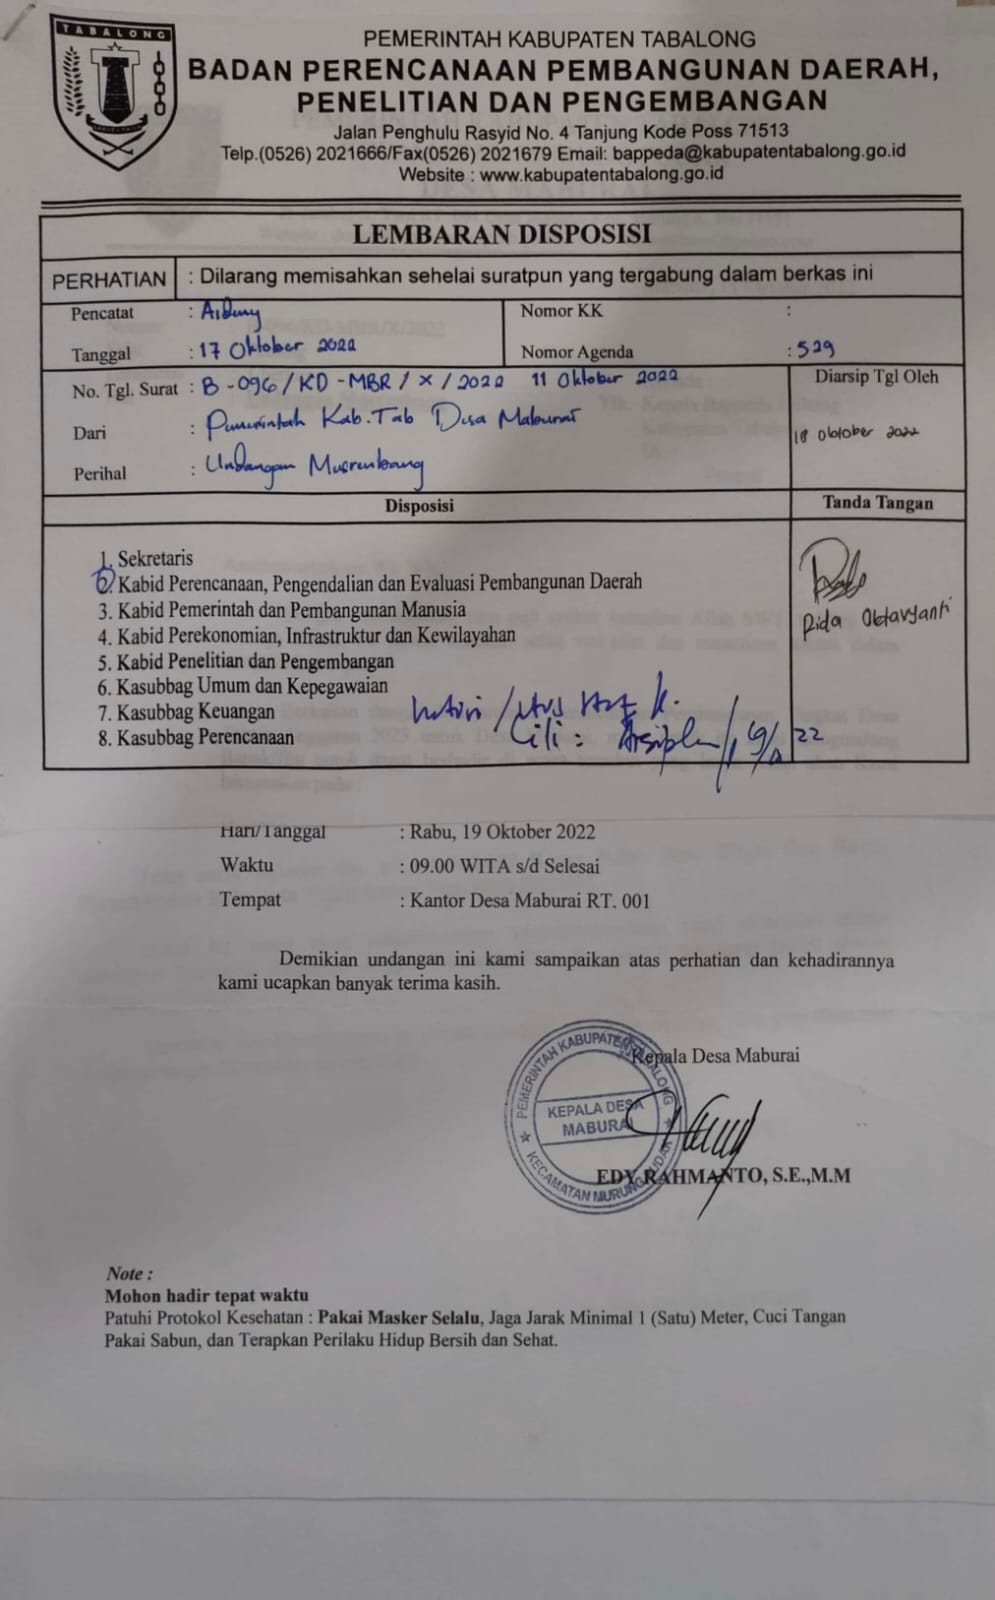 TABALONG
PEMERINTAH KABUPATEN TABALONG
BADAN PERENCANAAN PEMBANGUNAN DAERAH,
PENELITIAN DAN PENGEMBANGAN
Jalan Penghulu Rasyid No. 4 Tanjung Kode Poss 71513
Telp.(0526) 2021666/Fax(0526) 2021679 Email: bappeda@kabupatentabalong.go.id
Website : www.kabupatentabalong.go.id
LEMBARAN DISPOSISI
PERHATIAN : Dilarang memisahkan sehelai suratpun yang tergabung dalam berkas ini
Pencatat :
Nomor KK :
Tanggal : 17 Oktober 2022
Nomor Agenda : 529
No. Tgl. Surat : B-096/KD-MBR/X/2022 11 Oktober 2022
Diarsip Tgl Oleh
18 Oktober 2022
Dari : Pemerintah Kab. Tab Desa Maburai
Perihal : Undangan Musrenbang
Disposisi
Tanda Tangan
1. Sekretaris
2. Kabid Perencanaan, Pengendalian dan Evaluasi Pembangunan Daerah
3. Kabid Pemerintah dan Pembangunan Manusia
4. Kabid Perekonomian, Infrastruktur dan Kewilayahan
5. Kabid Penelitian dan Pengembangan
6. Kasubbag Umum dan Kepegawaian
7. Kasubbag Keuangan
8. Kasubbag Perencanaan
Rida Oktavyanti
Hari/Tanggal : Rabu, 19 Oktober 2022
Waktu : 09.00 WITA s/d Selesai
Tempat : Kantor Desa Maburai RT. 001
Demikian undangan ini kami sampaikan atas perhatian dan kehadirannya
kami ucapkan banyak terima kasih.
Kepala Desa Maburai
PEMERINTAH KABUPATEN TABALONG
KEPALA DESA
MABURAI
KECAMATAN MURUNG PUDAK
EDY RAHMANTO, S.E.,M.M
Note :
Mohon hadir tepat waktu
Patuhi Protokol Kesehatan : Pakai Masker Selalu, Jaga Jarak Minimal 1 (Satu) Meter, Cuci Tangan
Pakai Sabun, dan Terapkan Perilaku Hidup Bersih dan Sehat.